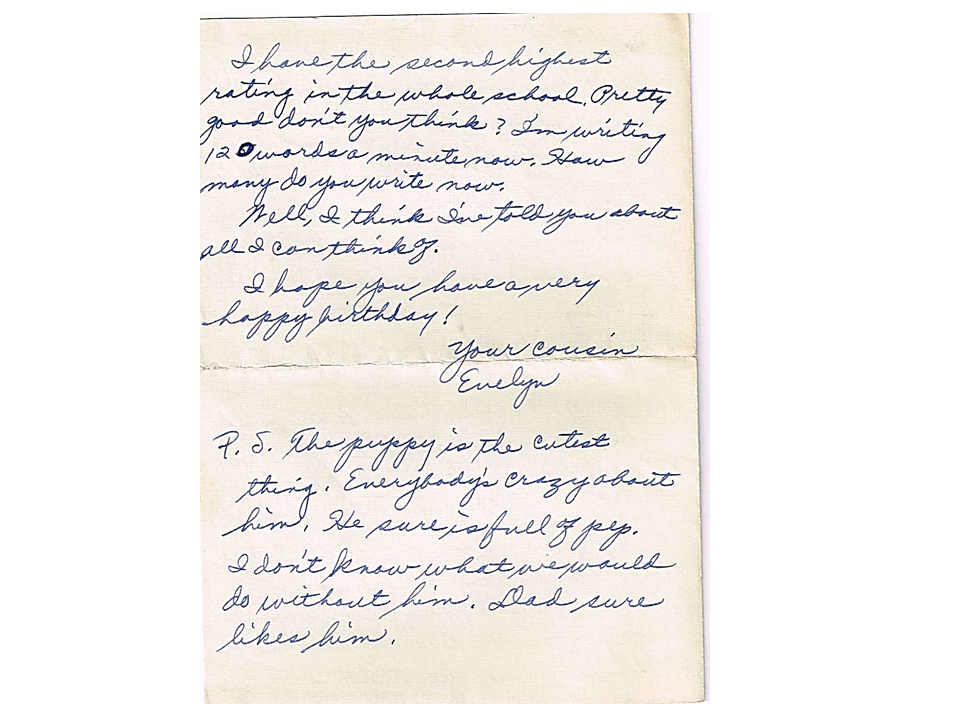 I have the second highest
rating in the whole school. Pretty
good don't you think? I'm writing
120 words a minute now. How
many do you write now.
Well, I think I've told you about
all I can think of.
I hope you have a very
happy birthday!
Your cousin
Evelyn
P. S. The puppy is the cutest
thing. Everybody's crazy about
him. He sure is full of pep.
I don't know what we would
do without him. Dad sure
likes him.